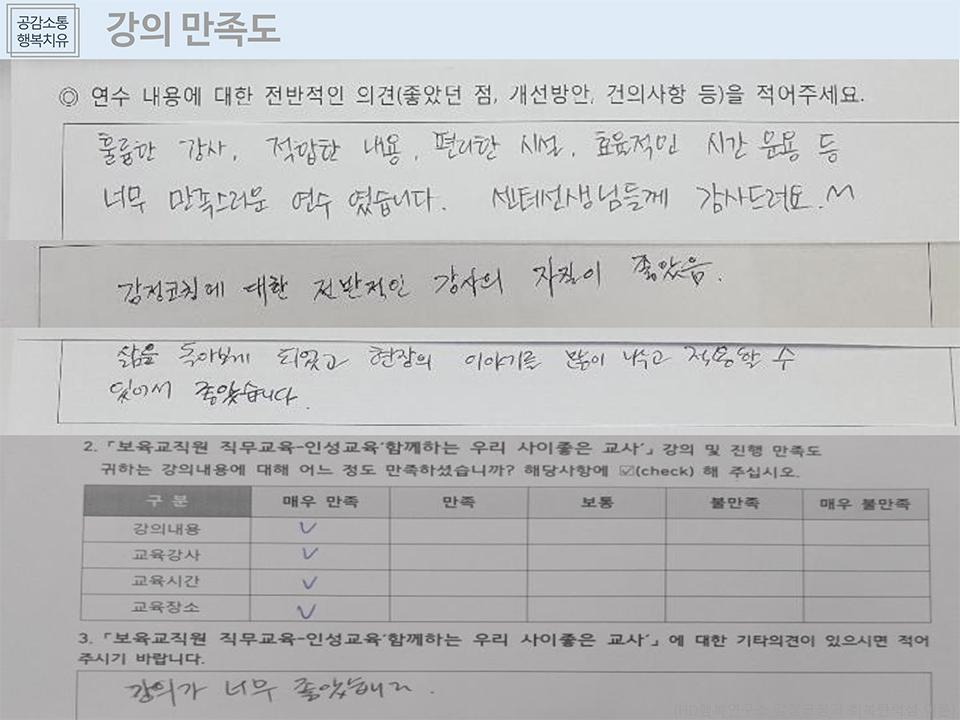 공감소통
행복치유
강의 만족도
◎ 연수 내용에 대한 전반적인 의견(좋았던 점, 개선방안, 건의사항 등)을 적어주세요.
훌륭한 강사, 적합한 내용, 편리한 시설, 효율적인 시간 운용 등
너무 만족스러운 연수 였습니다. 센터선생님들께 감사드려요.
감정코칭에 대한 전반적인 강사의 자질이 좋았음.
삶을 돌아보게 되었고 현장의 이야기를 많이 나누고 적용할 수
있어서 좋았습니다.
2. 「보육교직원 직무교육-인성교육‘함께하는 우리 사이좋은 교사’」 강의 및 진행 만족도
귀하는 강의내용에 대해 어느 정도 만족하셨습니까? 해당사항에 ☑(check) 해 주십시오.
구 분 매우 만족 만족 보통 불만족 매우 불만족
강의내용 ✓
교육강사 ✓
교육시간 ✓
교육장소 ✓
3. 「보육교직원 직무교육-인성교육‘함께하는 우리 사이좋은 교사’」에 대한 기타의견이 있으시면 적어
주시기 바랍니다.
강의가 너무 좋았습니다.